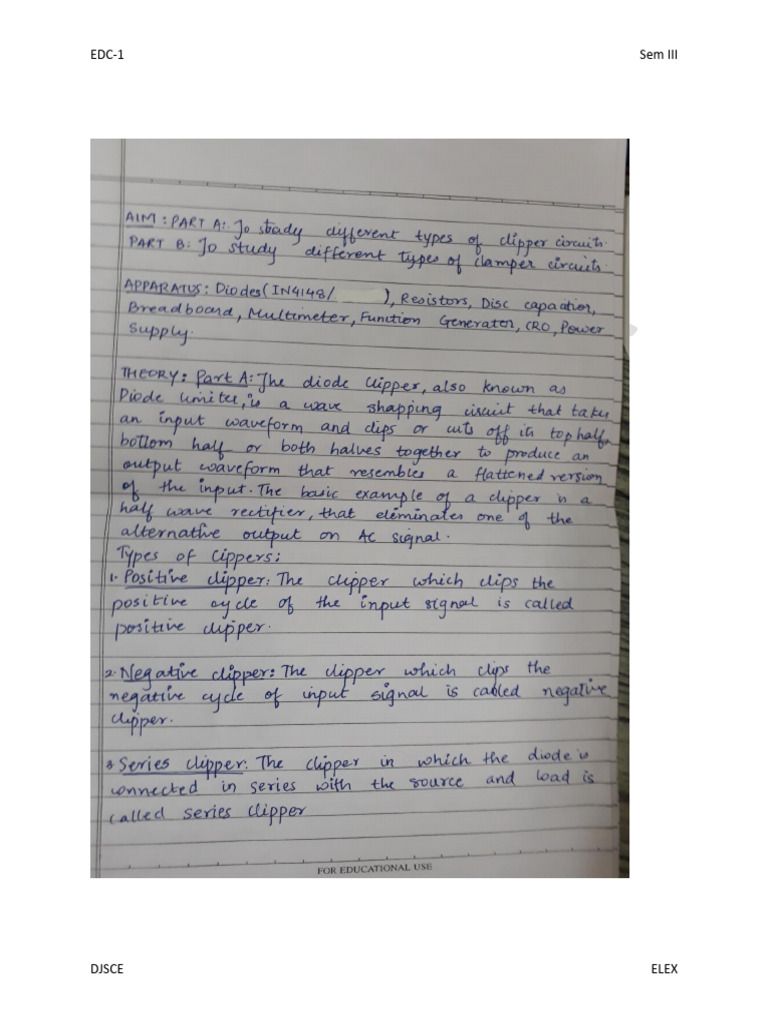 EDC-1 Sem III
AIM : PART A: To stady different types of clipper circuits
PART B: To study different types of clamper circuits.
APPARATUS: Diodes(IN4148/ ), Resistors, Disc capacitor,
Breadboard, Multimeter, Function Generator, CRO, Power
Supply.
THEORY: Part A: The diode clipper, also known as
Diode limiter, is a wave shapping circuit that takes
an input waveform and clips or cuts off its top half,
bottom half or both halves together to produce an
output waveform that resembles a flattened version
of the input. The basic example of a clipper is a
half wave rectifier, that eliminates one of the
alternative output on AC signal.
Types of Cippers:
1. Positive clipper: The clipper which clips the
positive cycle of the input signal is called
positive clipper.
2. Negative clipper: The clipper which clips the
negative cycle of input signal is called negative
clipper.
3 Series clipper: The clipper in which the diode is
connected in series with the source and load is
called series clipper
FOR EDUCATIONAL USE
DJSCE ELEX